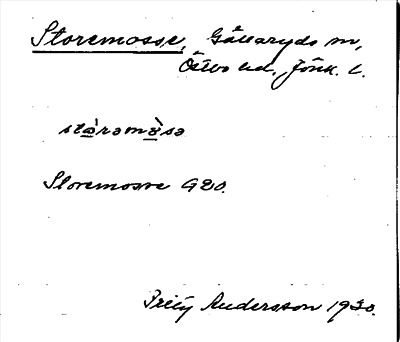 Storemosse, Gällaryds sn,
Östbo hd, Jönk. l.
stòrəmòsə
Storemosse GEO.
Andersson 1930.